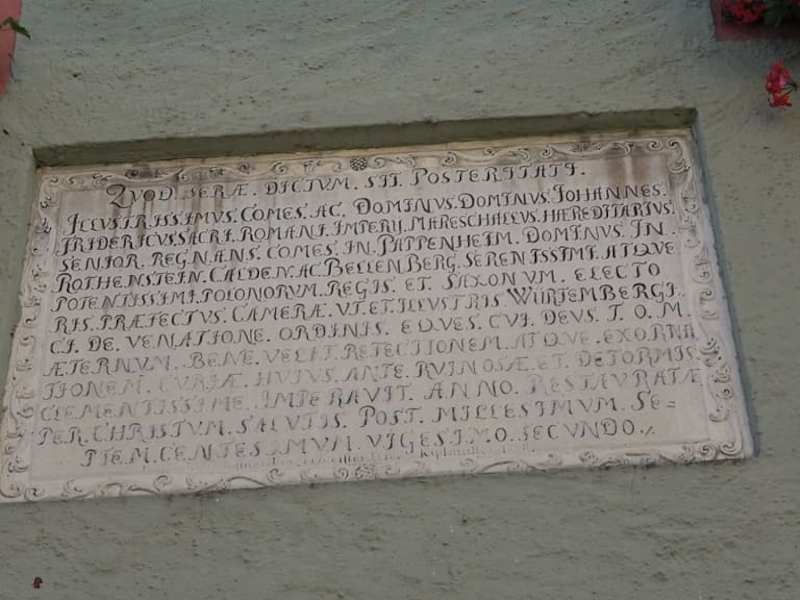 QVOD. SERÆ. DICTVM. SIT. POSTERITATI.
ILLVSTRISSIMVS. COMES. AC. DOMINVS. DOMINVS. IOHANNES.
FRIDERICVS. SACRI. ROMANI. IMPERIJ. MARESCHALLVS. HÆREDITARIVS.
SENIOR. REGNANS. COMES. IN. PAPPENHEIM. DOMINVS. IN.
ROTHENSTEIN. CALDEN. AC. BELLENBERG. SERENISSIMI. ATQVE
POTENTISSIMI. POLONORVM. REGIS. ET. SAXONVM. ELECTO
RIS. PRÆFECTVS. CAMERÆ. VT. ET. ILLVSTRIS. WÜRTEMBERGI.
CI. DE. VENATIONE. ORDINIS. EQVES. CVI. DEVS. T. O. M.
ÆTERNVM. BENE. VELIT. RETECTIONEM. ATQVE. EXORNA
TIONEM. CVRIÆ. HVIVS. ANTE. RVINOSÆ. ET. DEFORMIS
CLEMENTISSIME. IMPERAVIT. ANNO. RESTAVRATÆ
PER. CHRISTVM. SALVTIS. POST. MILLESIMVM. SE=
PTEM. CENTESIMVM. VIGESIMO. SECVNDO.